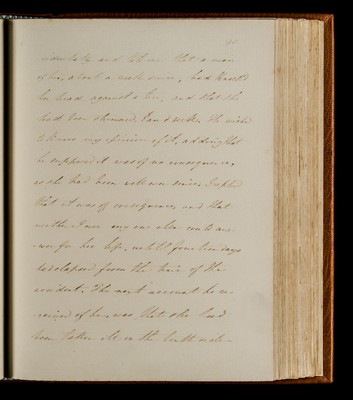 and told me that a man
of his, about a week since, had knocked
her head against a tree, and that she
had been stunned. He wished
to know my opinion of it, adding that
he supposed it was of no consequence,
as she had been well ever since. I replied
that it was of consequence, and that
neither I nor any one else could ans-
-wer for her life, until fourteen days
had elapsed from the time of the
accident. The next account he re-
-ceived of her was, that she had
been taken ill on the tenth